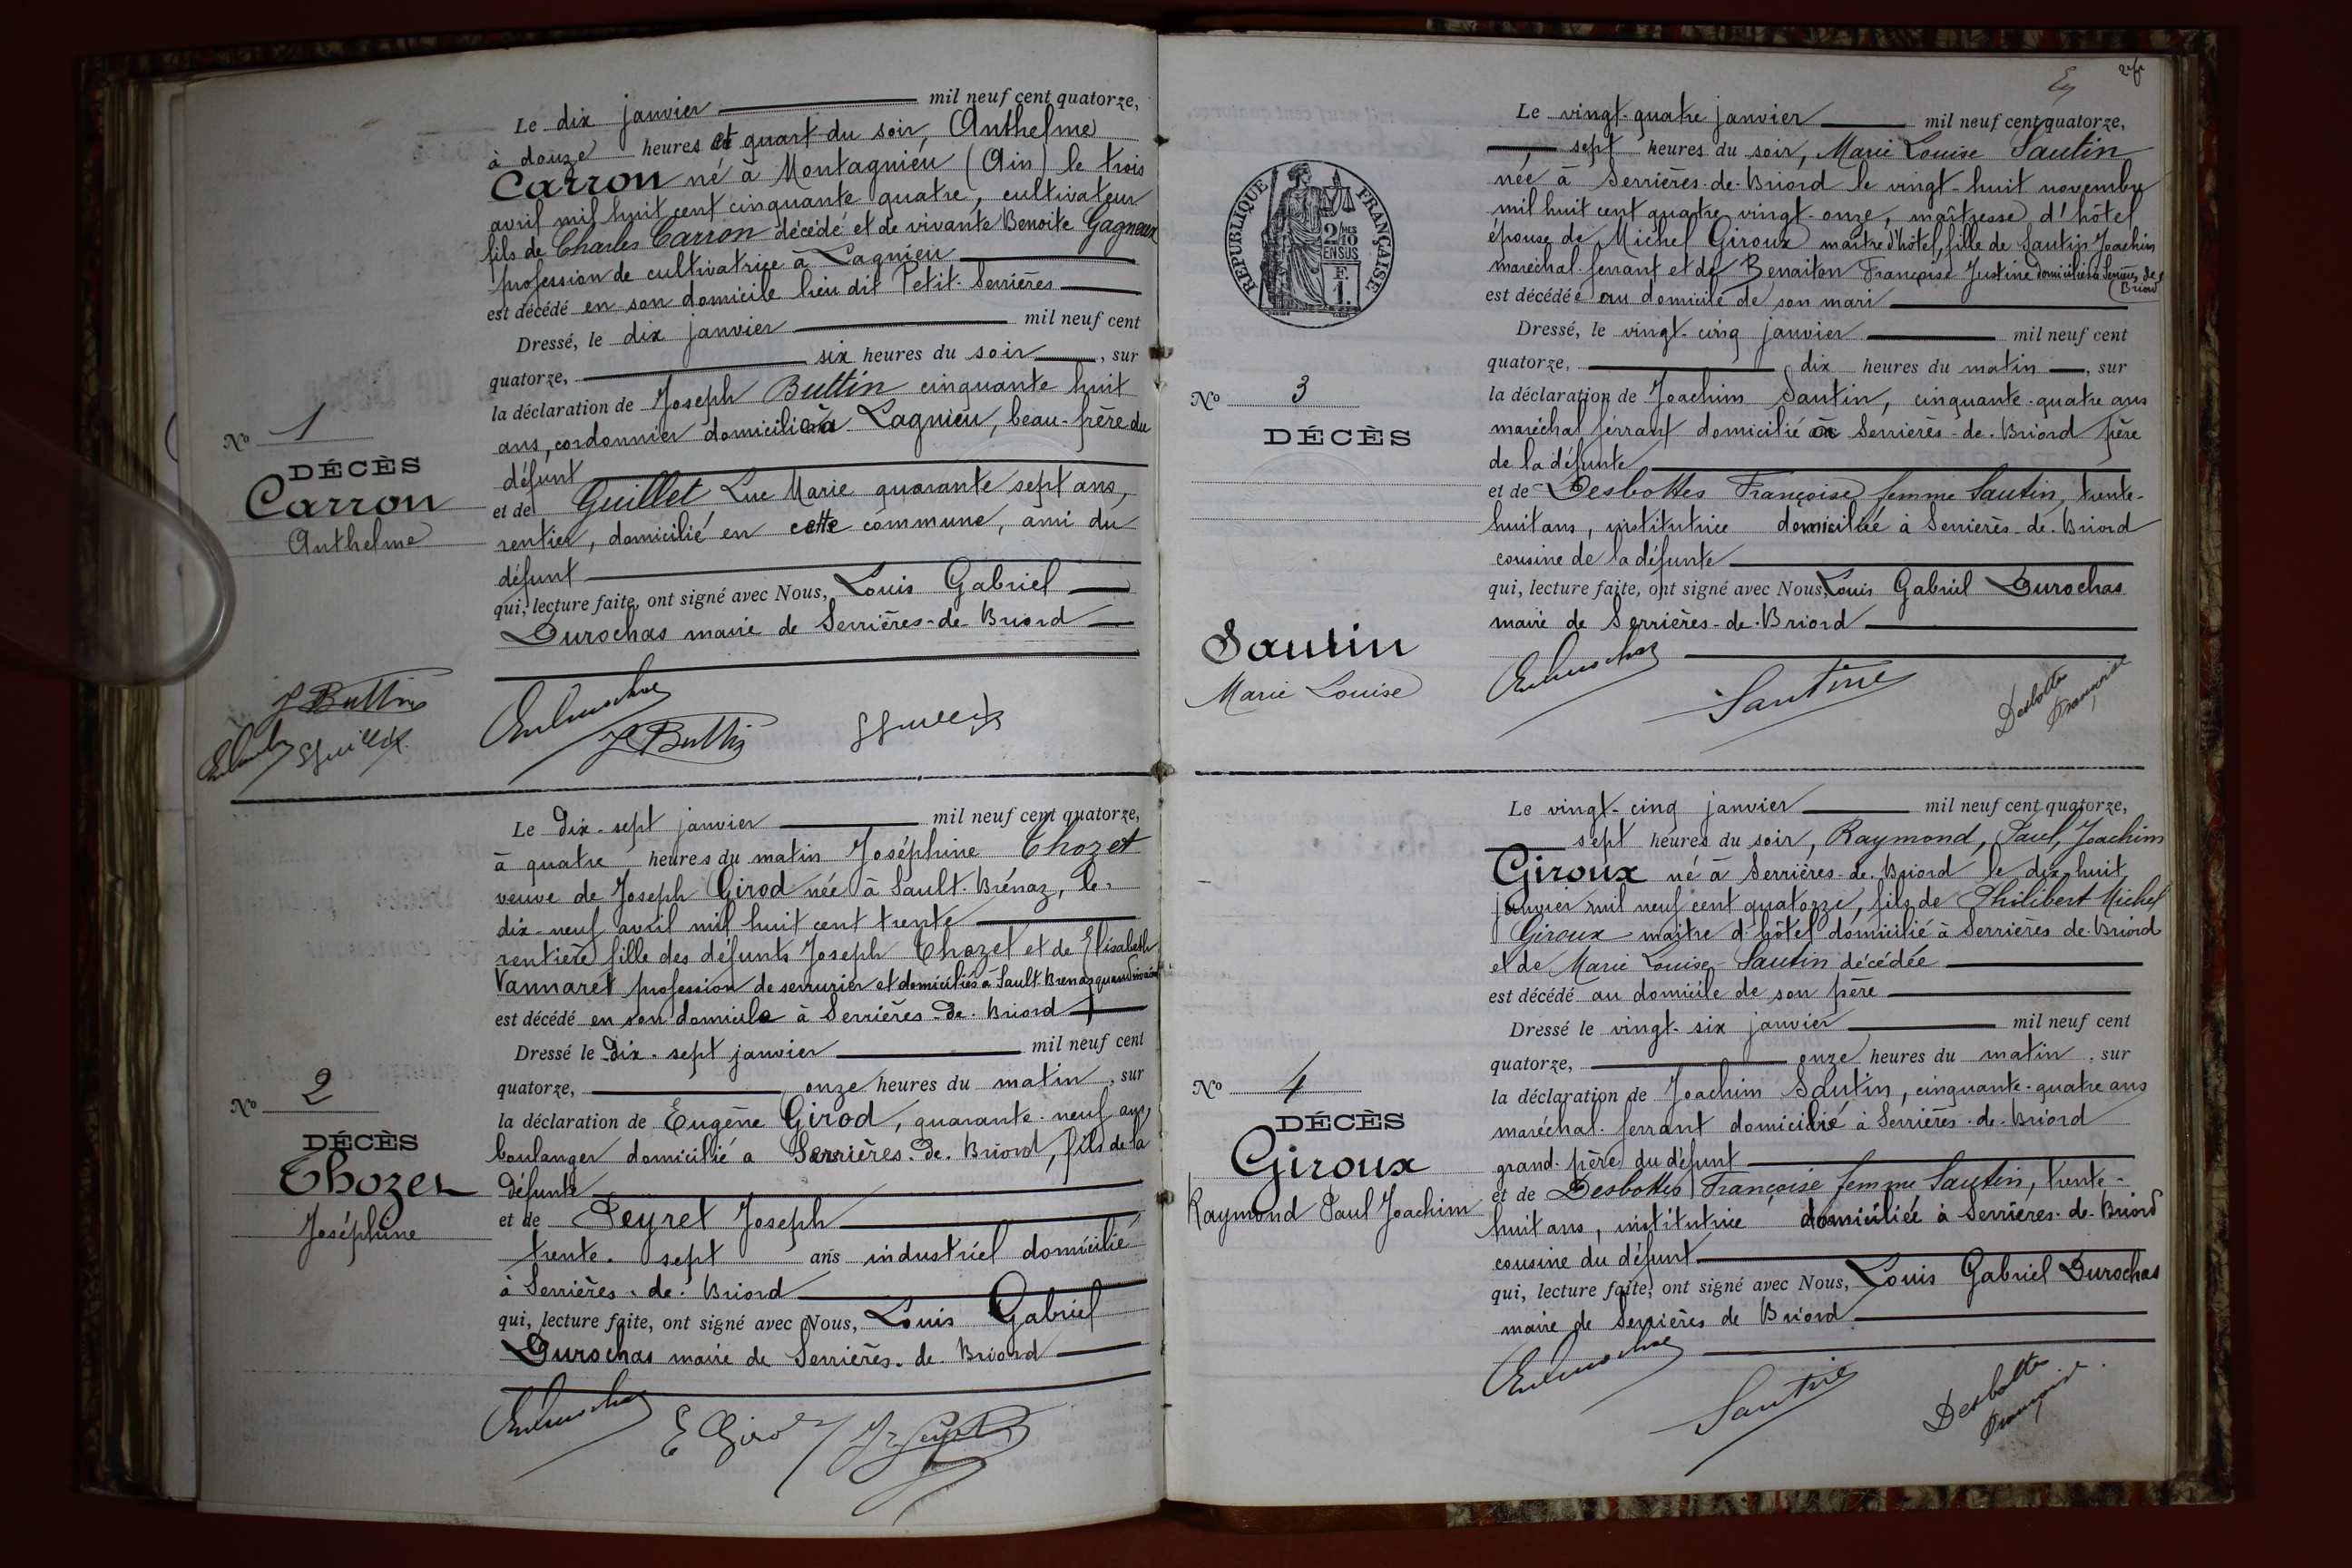 Le dix janvier mil neuf cent quatorze,
à douze heures et quart du soir, Anthelme
Carron né à Montagnieu (Ain) le trois
avril mil huit cent cinquante quatre, cultivateur
fils de Charles Carron décédé et de vivante Benoite Gagneux
profession de cultivatrice à Lagnieu
est décédé en son domicile lieu dit Petit-Serrières
Dressé, le dix janvier mil neuf cent
quatorze, six heures du soir, sur
la déclaration de Joseph Buttin cinquante huit
ans, cordonnier domicilié à Lagnieu, beau-frère du
défunt
et de Guillet Luc Marie quarante sept ans,
rentier, domicilié en cette commune, ami du
défunt
qui, lecture faite, ont signé avec Nous, Louis Gabriel
Durochas maire de Serrières-de-Briord
No 1
DÉCÈS
Carron
Anthelme
J Buttin
J Buttin
Le Dix-sept janvier mil neuf cent quatorze,
à quatre heures du matin Joséphine Thozet
veuve de Joseph Girod née à Sault-Brénaz, le
dix-neuf avril mil huit cent trente
rentière fille des défunts Joseph Thozet et de Elisabeth
Vannaret profession de serrurier et domiciliés à Sault-Brenaz quand vivaient
est décédé en son domicile à Serrières-de-Briord
Dressé le Dix-sept janvier mil neuf cent
quatorze, onze heures du matin, sur
la déclaration de Eugène Girod, quarante-neuf ans,
boulanger domicilié a Serrières-de-Briord, fils de la
défunte
et de Peyret Joseph
trente-sept ans industriel domicilié
à Serrières-de-Briord
qui, lecture faite, ont signé avec Nous, Louis Gabriel
Durochas maire de Serrières-de-Briord
No 2
DÉCÈS
Thozet
Joséphine
E Girod
2e f
Le vingt-quatre janvier mil neuf cent quatorze,
sept heures du soir, Marie Louise Sautin
née à Serrières-de-Briord le vingt-huit novembre
mil huit cent quatre vingt-onze, maîtresse d'hôtel
épouse de Michel Giroux maître d'hôtel, fille de Sautin Joachim
maréchal-ferrant et de Benaiton Françoise Justine domiciliés à Serrières de
Briord
est décédée au domicile de son mari
Dressé, le vingt-cinq janvier mil neuf cent
quatorze, dix heures du matin, sur
la déclaration de Joachim Sautin, cinquante-quatre ans
maréchal ferrant domicilié à Serrières-de-Briord père
de la défunte
et de Desbottes Françoise femme Sautin, trente-
huit ans, institutrice domiciliée à Serrières-de-Briord
cousine de la défunte
qui, lecture faite, ont signé avec Nous, Louis Gabriel Durochas
maire de Serrières-de-Briord
RÉPUBLIQUE FRANÇAISE
2/10 MES
EN SUS
F.
1.
No 3
DÉCÈS
Sautin
Marie Louise
Sautin
Desbottes
Françoise
Le vingt-cinq janvier mil neuf cent quatorze,
sept heures du soir, Raymond, Paul, Joachim
Giroux né à Serrières-de-Briord le dix huit
janvier mil neuf cent quatorze, fils de Philibert Michel
Giroux maître d'hôtel domicilié à Serrières-de-Briord
et de Marie Louise Sautin décédée
est décédé au domicile de son père
Dressé le vingt-six janvier mil neuf cent
quatorze, onze heures du matin, sur
la déclaration de Joachim Sautin, cinquante-quatre ans
maréchal-ferrant domicilié à Serrières-de-Briord
grand-père du défunt
et de Desbottes Françoise femme Sautin, trente-
huit ans, institutrice domiciliée à Serrières-de-Briord
cousine du défunt
qui, lecture faite, ont signé avec Nous, Louis Gabriel Durochas
maire de Serrières de Briord
No 4
DÉCÈS
Giroux
Raymond Paul Joachim
Sautin
Desbottes
Françoise